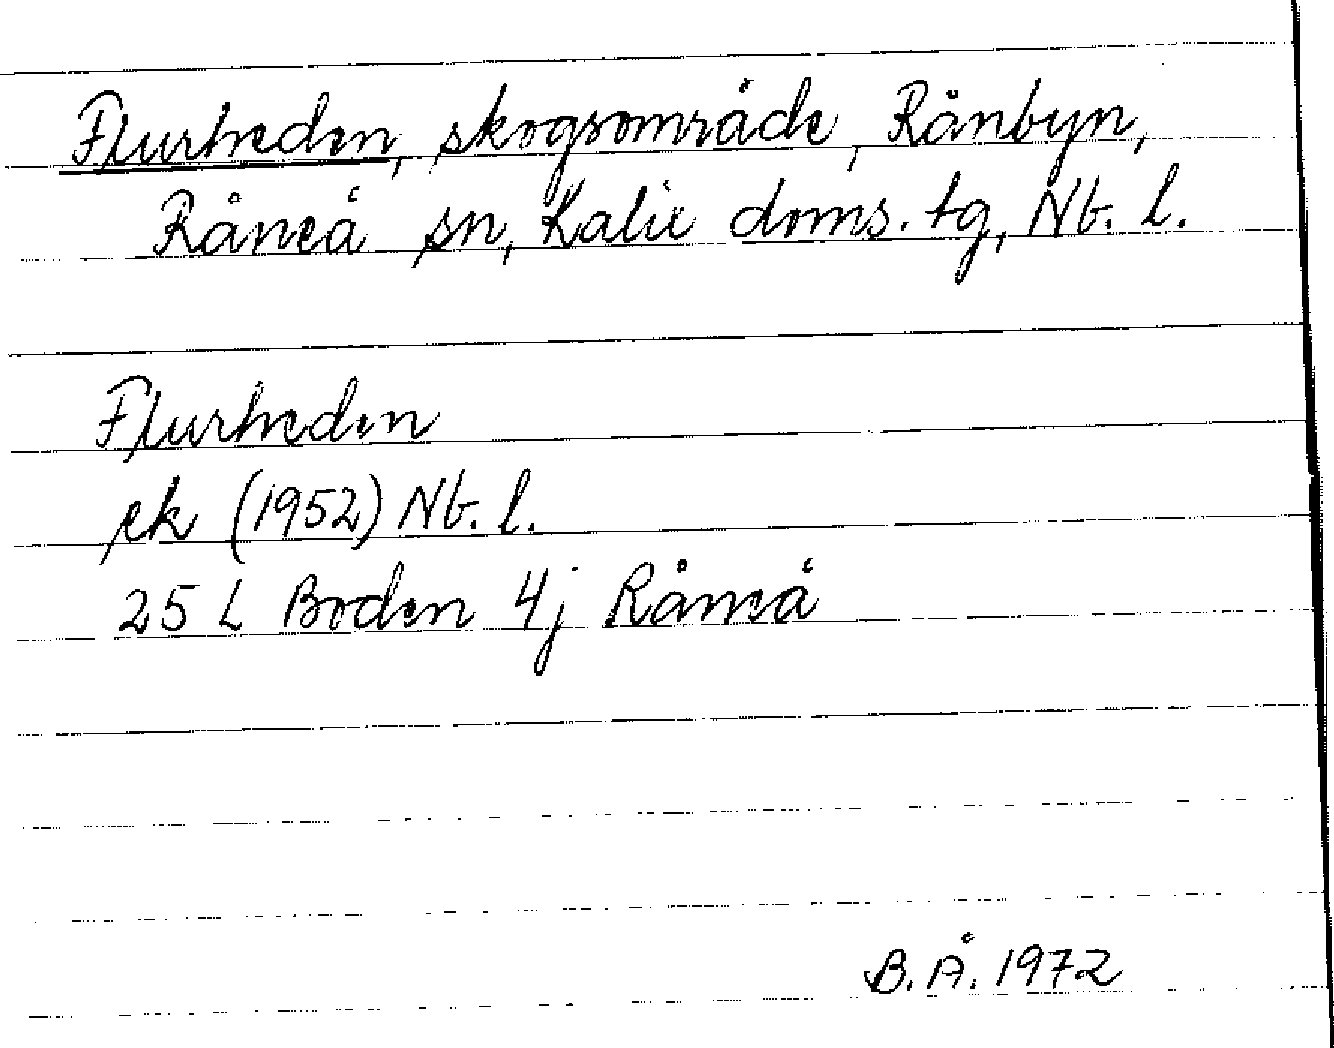 Flurheden, skogsområde, Rånbyn,
Råneå sn, Kalix doms. tg, Nb. l.
Flurheden
ek (1952) Nb. l.
25 L Boden 4j Råneå
B.Å. 1972